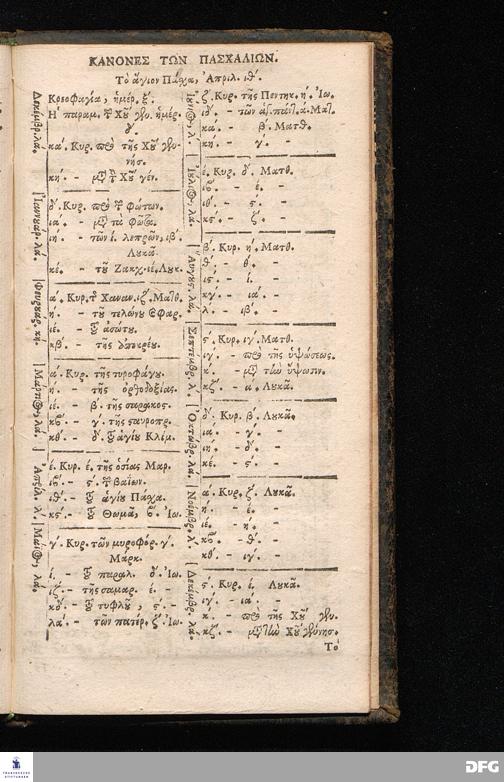 ΚΑΝΟΝΕΣ ΤΩΝ ΠΑΣΧΑΛΙΩΝ.
Τὸ ἅγιον Πάσχα, Ἀπριλ. ιθ́.
Δεκέμβρ. λά.
Κρεοφαγία, ἡμέρ. ξ.
Ἡ παραμ. τ͂ Χῦ γεν. ἡμέρ.
δ́.
κά. Κυρ. πρὸ τῆς Χῦ γεν-
νήσ.
κή. - μτ͂ τ̀ Χῦ γέν.
Ἰαννουάρ. λά.
δ́. Κυρ. πρὸ τ͂ Φώτων.
ιά. - μτ͂ τὰ Φῶτα.
ιη. - τῶν ί. λεπρῶν, ιβ́.
Λουκᾶ.
κέ. - τοῦ Ζακχ. ιέ. Λυκ.
Φευρουάρ. κη.
ά. Κυρ. τ͂ Χαναν. ιζ́. Ματθ.
ή. - τοῦ τελώνου ϗ Φαρ.
ιέ. - τοῦ ἀσώτου.
κβ́. - τῆς ἀπόκρεω.
Μάρτιος, λά.
ά. Κυρ. τῆς τυροφάγου.
ή. - τῆς ὀρθοδοξίας.
ιέ. - β́. τῆς σαρακος.
κβ́. - γ́. τῆς σταυροπρ.
κθ́. - δ́. τοῦ ἁγίου Κλίμ.
Ἀπρίλ. λ.
έ. Κυρ. έ. τῆς ὁσίας Μαρ.
ιβ́. - ς́. τ͂ βαΐων.
ιθ́. - τοῦ ἁγίου Πάσχα.
κς́. - τοῦ Θωμᾶ, β́. Ἰω.
Μαΐος, λά.
γ́. Κυρ. τῶν μυροφόρ. γ́.
Μάρκ.
ί. - τοῦ παραλ. δ́. Ἰω.
ιζ́. - τῆς σαμαρ. έ. -
κδ́. - τοῦ τυφλοῦ, ς́. -
λά. - τῶν πατέρ. ζ́. Ἰω.
Ἰούνιος, λ.
ζ́. Κυρ. τῆς Πεντηκ. ή. Ἰω.
ιδ́. - τῶν ἁγ. πάντ. ά. Ματ.
κα. - β́. Ματθ.
κη. - γ́. -
Ἰούλιος, λά.
έ. Κυρ. δ́. Ματθ.
ιβ́. - έ. -
ιθ́. - ς́. -
κς́. - ζ́. -
Αὔγους. λά.
β́. Κυρ. ή. Ματθ.
θ́. - θ́. -
ις. - ί. -
κγ́. - ιά. -
λ. - ιβ́. -
Σεπτεμβρ. λ.
ς́. Κυρ. ιγ́. Ματθ.
ιγ́. - πρὸ τῆς ὑψώσεως.
κ. - μτ͂ τὴν ὕψωσιν.
κζ́. - ά. Λουκᾶ.
Ὀκτώβρ. λά.
δ́. Κυρ. β́. Λουκᾶ.
ιά. - γ́. -
ιη. - δ́. -
κέ. - ς́. -
Νοέμβρ. λ.
ά. Κυρ. ζ́. Λουκᾶ.
ή. - έ. -
ιέ. - ή. -
κβ́. - θ́. -
κθ́. - ιγ́. -
Δεκέμβρ. λά.
ς́. Κυρ. ί. Λουκᾶ.
ιγ́. - ια. -
κ. - πρὸ τῆς Χῦ γεν.
κζ́. - μτ͂ τὴν Χῦ γέννησ.
Τὸ
FRANCKESCHE
STIFTUNGEN
DFG